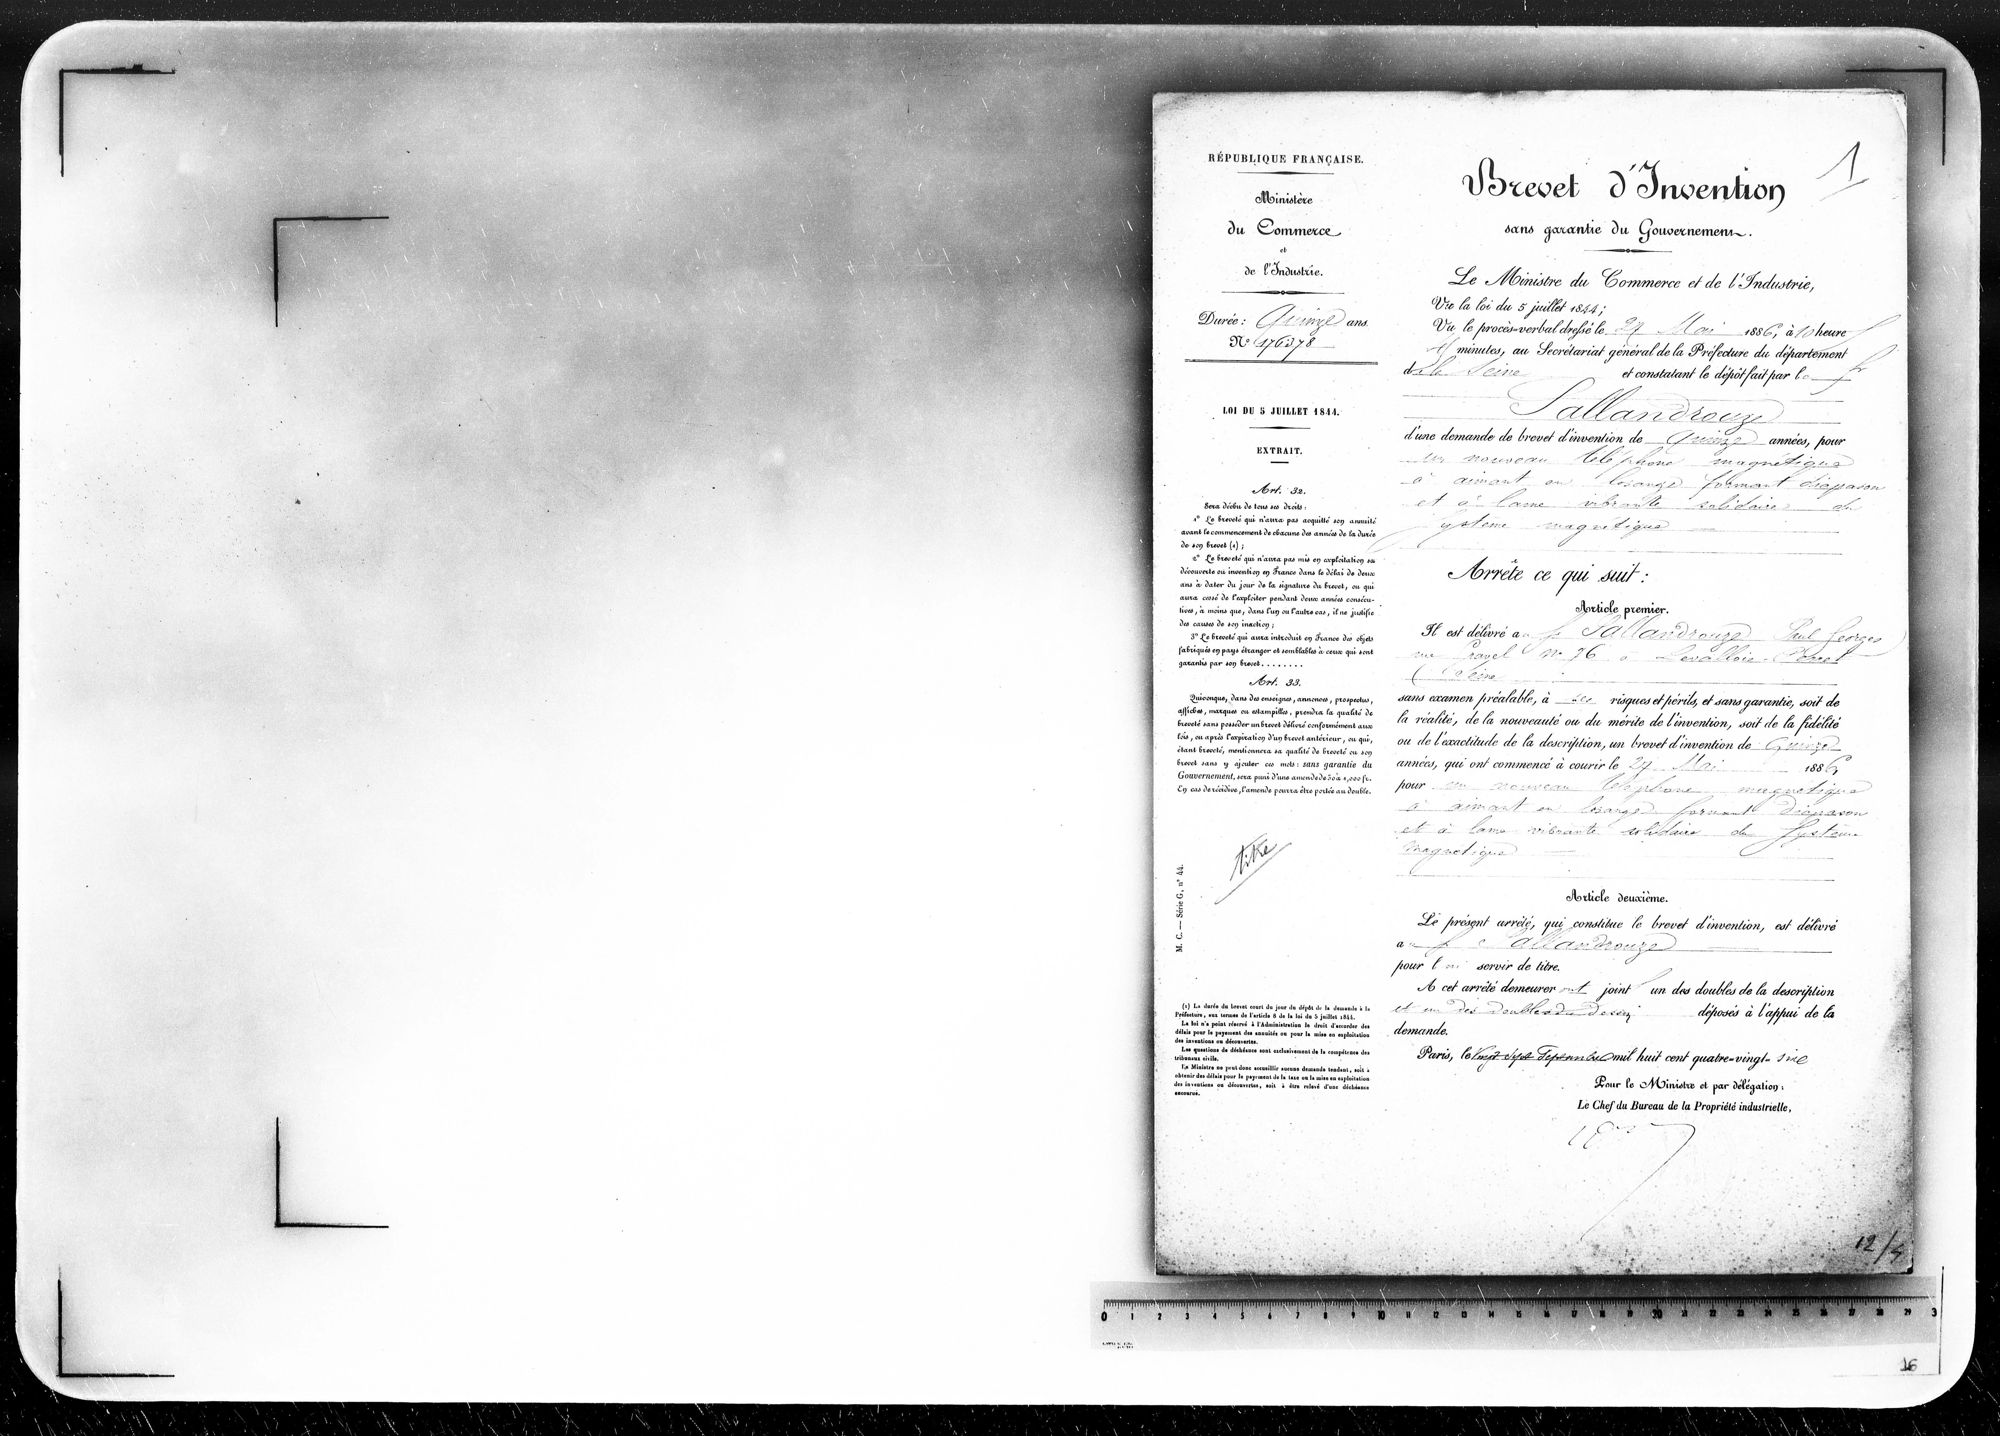 RÉPUBLIQUE FRANÇAISE.
Ministère
du Commerce
et
de l'Industrie.
Durée : Quinze ans.
N° 176378
LOI DU 5 JUILLET 1844.
EXTRAIT.
Art. 32.
Sera déchu de tous ses droits :
1° Le breveté qui n'aura pas acquitté son annuité
avant le commencement de chacune des années de la durée
de son brevet (1) ;
2° Le breveté qui n'aura pas mis en exploitation sa
découverte ou invention en France dans le délai de deux
ans à dater du jour de la signature du brevet, ou qui
aura cessé de l'exploiter pendant deux années consécu-
tives, à moins que, dans l'un ou l'autre cas, il ne justifie
des causes de son inaction ;
3° Le breveté qui aura introduit en France des objets
fabriqués en pays étranger et semblables à ceux qui sont
garantis par son brevet........
Art. 33.
Quiconque, dans des enseignes, annonces, prospectus,
affiches, marques ou estampilles, prendra la qualité de
breveté sans posséder un brevet délivré conformément aux
lois, ou après l'expiration d'un brevet antérieur, ou qui,
étant breveté, mentionnera sa qualité de breveté ou son
brevet sans y ajouter ces mots : sans garantie du
Gouvernement, sera puni d'une amende de 50 à 1,000 fr.
En cas de récidive, l'amende pourra être portée au double.
titre
M. C. — Série G, n° 44.
(1) La durée du brevet court du jour du dépôt de la demande à la
Préfecture, aux termes de l'article 8 de la loi du 5 juillet 1844.
La loi n'a point réservé à l'Administration le droit d'accorder des
délais pour le payement des annuités ou pour la mise en exploitation
des inventions ou découvertes.
Les questions de déchéance sont exclusivement de la compétence des
tribunaux civils.
Le Ministre ne peut donc accueillir aucune demande tendant, soit à
obtenir des délais pour le payement de la taxe ou la mise en exploitation
des inventions ou découvertes, soit à être relevé d'une déchéance
encourue.
1
Brevet d'Invention
sans garantie du Gouvernement.
Le Ministre du Commerce et de l'Industrie,
Vu la loi du 5 juillet 1844 ;
Vu le procès-verbal dressé le 27 Mai 1886, à 10 heure
minutes, au Secrétariat général de la Préfecture du département
de la Seine et constatant le dépôt fait par le Sr
Sallandrouze
d'une demande de brevet d'invention de Quinze années, pour
un nouveau téléphone magnétique
à aimant en losange formant diapason
et à lame vibrante solidaire du
Système magnétique
Arrête ce qui suit :
Article premier.
Il est délivré au Sr Sallandrouze Paul Georges
rue Gravel N° 76 à Levallois-Perret
(Seine
sans examen préalable, à ses risques et périls, et sans garantie, soit de
la réalité, de la nouveauté ou du mérite de l'invention, soit de la fidélité
ou de l'exactitude de la description, un brevet d'invention de Quinze
années, qui ont commencé à courir le 27 Mai 1886,
pour un nouveau téléphone magnétique
à aimant en losange formant diapason
et à lame vibrante solidaire du Système
magnétique
Article deuxième.
Le présent arrêté, qui constitue le brevet d'invention, est délivré
au Sr Sallandrouze
pour lui servir de titre.
A cet arrêté demeureront joints un des doubles de la description
et un des doubles du dessin déposés à l'appui de la
demande.
Paris, le vingt sept Septembre mil huit cent quatre-vingt-six
Pour le Ministre et par délégation :
Le Chef du Bureau de la Propriété industrielle,
12/4
0 1 2 3 4 5 6 7 8 9 10 11 12 13 14 15 16 17 18 19 20 21 22 23 24 25 26 27 28 29 3
16